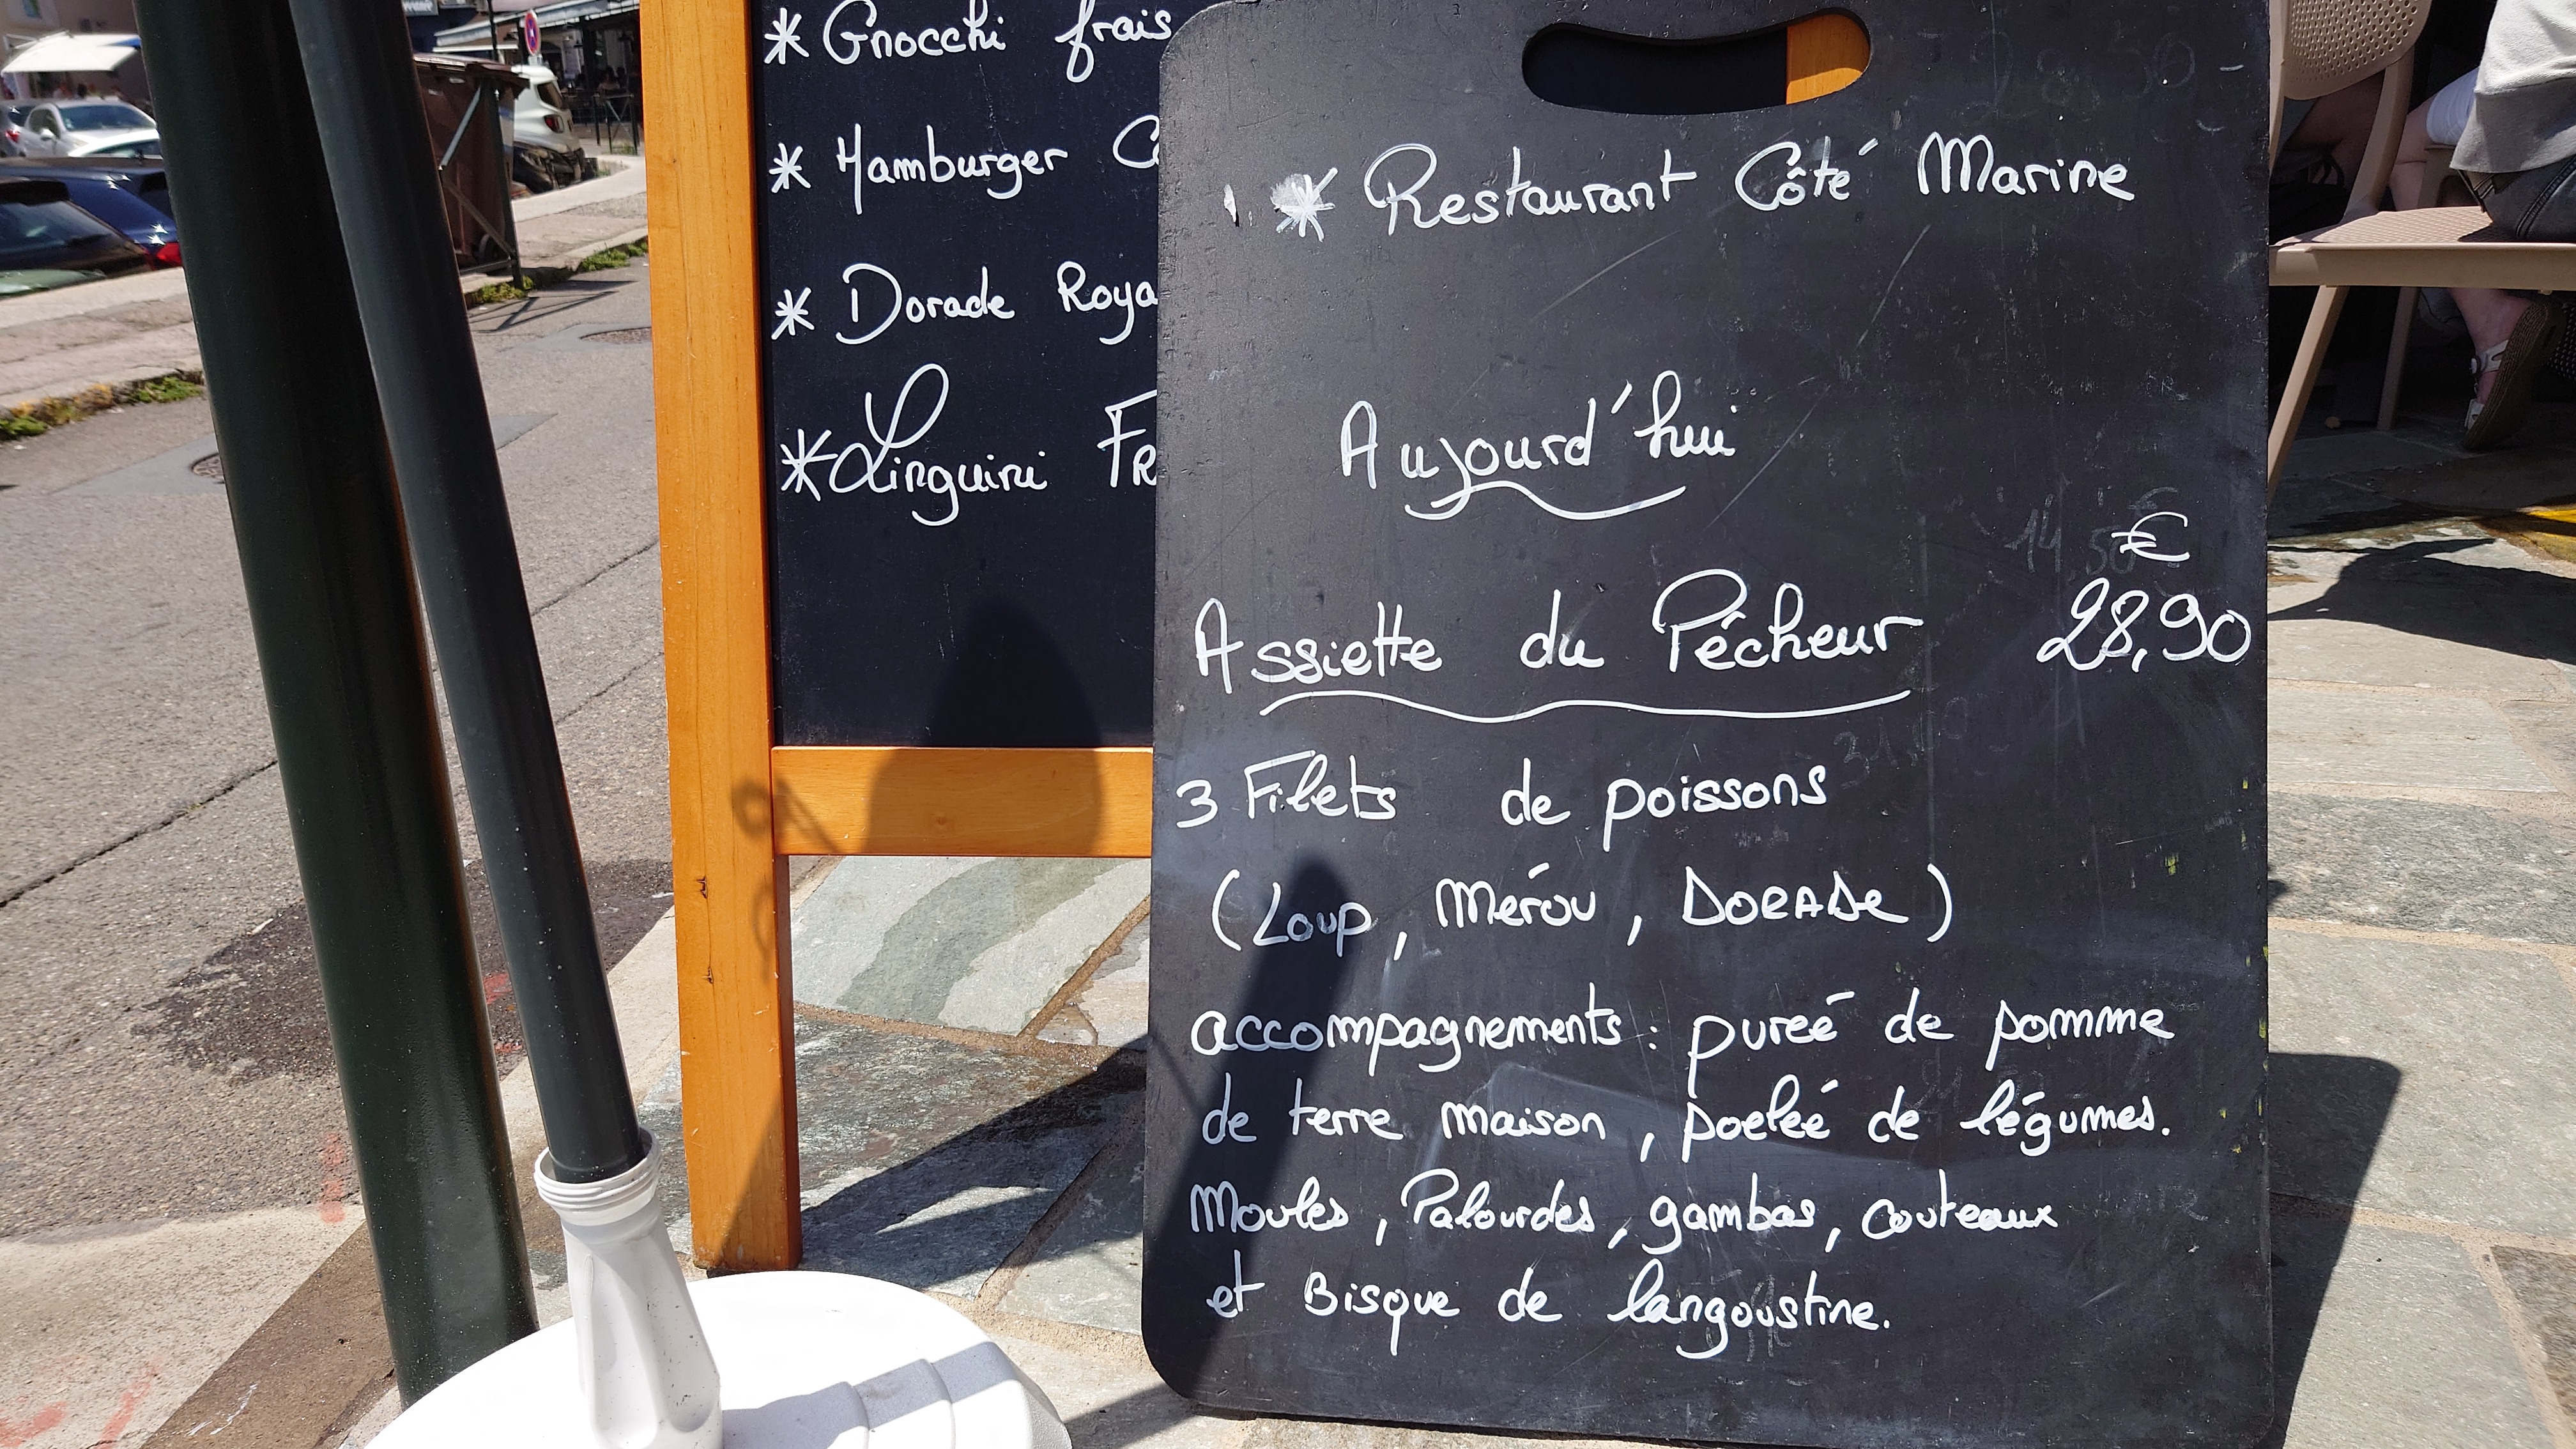 * Gnocchi frais
* Hamburger
* Dorade
* Linguini
* Restaurant Côté Marine
Aujourd'hui
€
Assiette du Pêcheur 28,90
3 Filets de poissons
(Loup, Mérou, DORADe)
accompagnements : pureé de pomme
de terre maison, poeleé de légumes.
Moules, Palourdes, gambas, couteaux
et Bisque de langoustine.